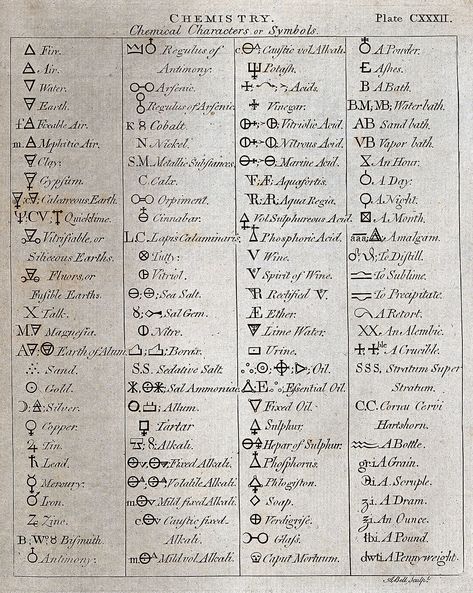 CHEMISTRY.
Plate CXXXII.
Chemical Characters or Symbols.
Fire.
Air.
Water.
Earth.
f Fixeable Air.
m Mephitic Air.
Clay.
Gypsum.
Calcareous Earth.
CV; Quicklime.
Vitrifiable, or
Siliceous Earths.
Fluors, or
Fusible Earths.
X Talk.
M Magnesia.
A Earth of Alum.
Sand.
Gold.
Silver.
Copper.
Tin.
Lead.
Mercury.
Iron.
Z Zinc.
B; W Bismuth.
Antimony.
Regulus of
Antimony.
Arsenic.
Regulus of Arsenic.
K Cobalt.
N Nickel.
S.M. Metallic Substances.
C. Calx.
Orpiment.
Cinnabar.
L.C. Lapis Calaminaris.
Tutty.
Vitriol.
Sea Salt.
Sal Gem.
Nitre.
Borax.
S.S. Sedative Salt.
Sal Ammoniac.
Allum.
Tartar
Alkali.
Fixed Alkali.
Volatile Alkali.
m Mild fixed Alkali.
c Caustic fixed
Alkali.
m Mild vol. Alkali.
c Caustic vol. Alkali.
Potash.
Acids.
Vinegar.
Vitriolic Acid.
Nitrous Acid.
Marine Acid.
Aquafortis.
Aqua Regia.
Vol. Sulphureous Acid.
Phosphoric Acid.
V Wine.
Spirit of Wine.
Rectified V.
Æ Ether.
Lime Water.
Urine.
Oil.
E Essential Oil.
Fixed Oil.
Sulphur.
Hepar of Sulphur.
Phosphorus.
Phlogiston.
Soap.
Verdigrise.
Glass.
Caput Mortuum.
A Powder.
E Ashes.
B A Bath.
B.M; MB; Water bath.
AB Sand bath.
VB Vapor bath.
X An Hour.
A Day.
A Night.
A Month.
aaa; Amalgam.
To Distill.
To Sublime.
To Precipitate.
A Retort.
XX. An Alembic.
ble A Crucible.
S.S.S. Stratum Super
Stratum.
C.C. Cornu Cervi
Hartshorn.
A Bottle.
gr.i A Grain.
A Scruple.
A Dram.
An Ounce.
A Pound.
dwt.i A Pennyweight.
A. Bell Sculpt.